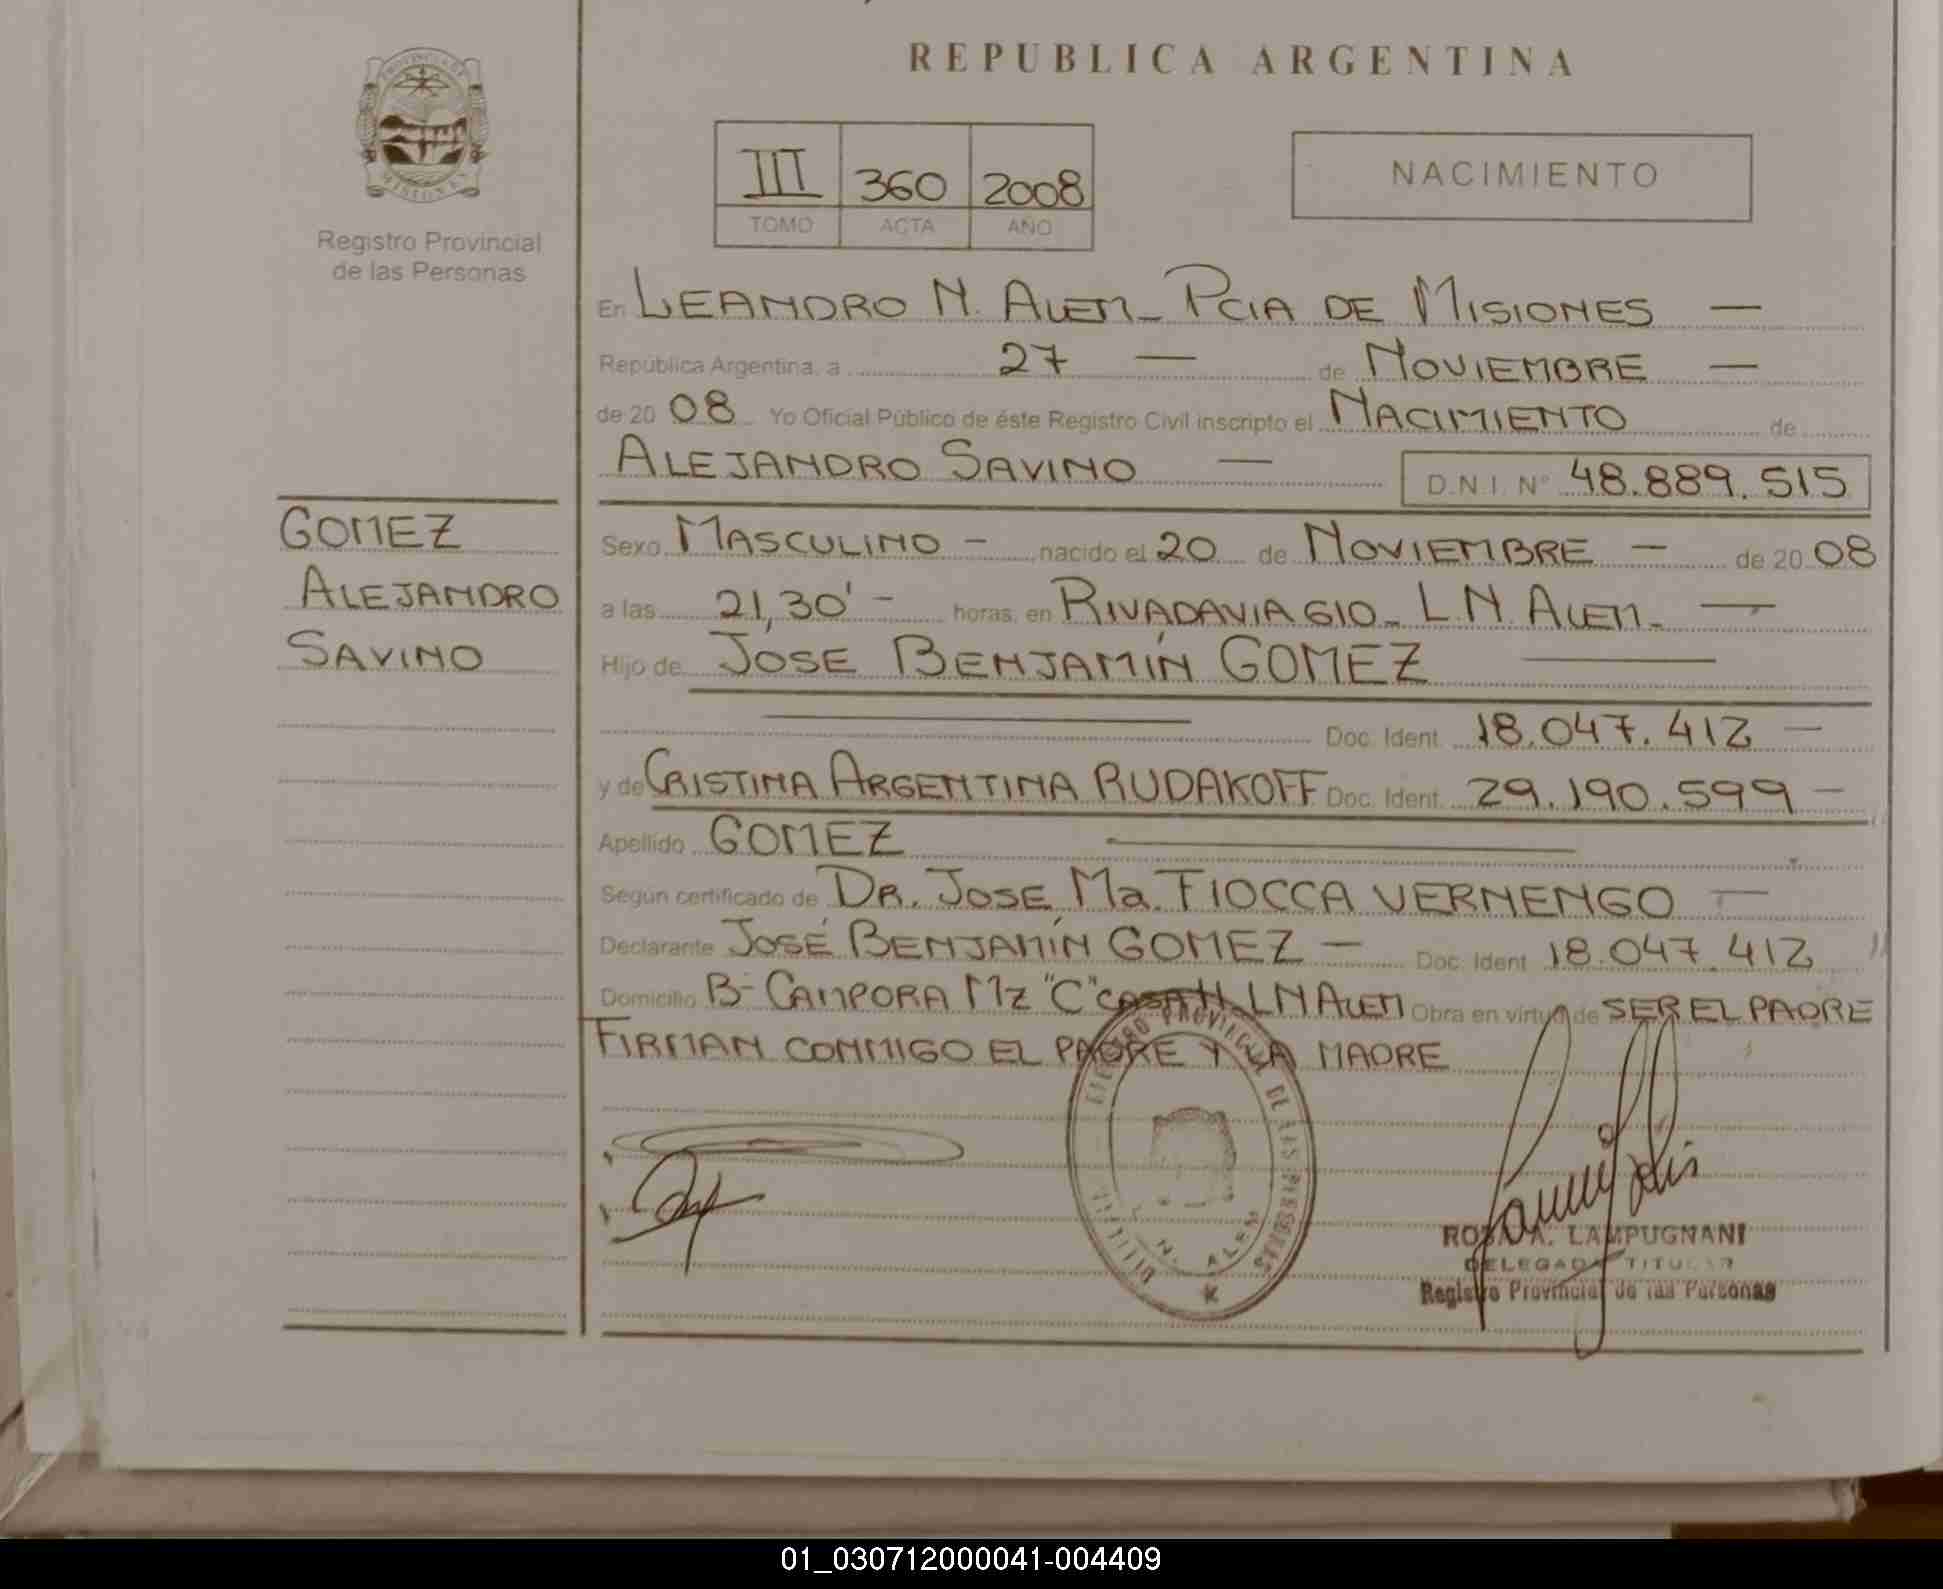 PROVINCIA DE
MISIONES
Registro Provincial
de las Personas
GOMEZ
ALEJANDRO
SAVINO
REPUBLICA ARGENTINA
III 360 2008
TOMO ACTA AÑO
NACIMIENTO
En LEANDRO N. ALEM - PCIA DE MISIONES —
República Argentina, a 27 — de NOVIEMBRE —
de 20 08 Yo Oficial Público de éste Registro Civil inscripto el NACIMIENTO de
ALEJANDRO SAVINO — D.N.I. Nº 48.889.515
Sexo MASCULINO - nacido el 20 de NOVIEMBRE — de 20 08
a las 21,30' - horas, en RIVADAVIA 610 - L.N. ALEM - —
Hijo de JOSE BENJAMÍN GOMEZ —
— Doc. Ident. 18.047.412 —
y de CRISTINA ARGENTINA RUDAKOFF Doc. Ident. 29.190.599 —
Apellido GOMEZ —
Según certificado de DR. JOSE Ma. FIOCCA VERNENGO —
Declarante JOSÉ BENJAMÍN GOMEZ — Doc. Ident. 18.047.412
Domicilio B- CAMPORA Mz "C" CASA LN ALEM Obra en virtud de SER EL PADRE
FIRMAN CONMIGO EL PADRE Y LA MADRE
REGISTRO PROVINCIAL DE LAS PERSONAS
N. ALEM
ROSA A. LAMPUGNANI
DELEGADA TITULAR
Registro Provincial de las Personas
01_030712000041-004409